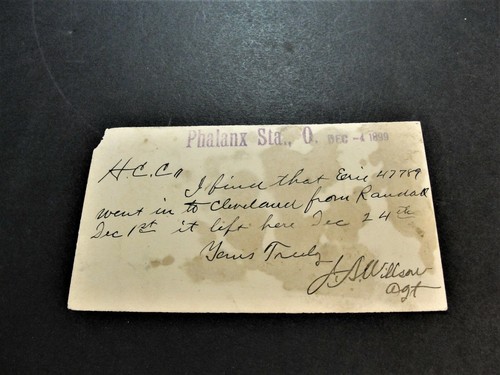 Phalanx Sta., O. DEC -4 1899
H.C.Co
I find that Erie 47789
went in to Cleveland from Randall
Dec 1st it left here Dec 24th
Yours Truly
J.B. Willson
Agt